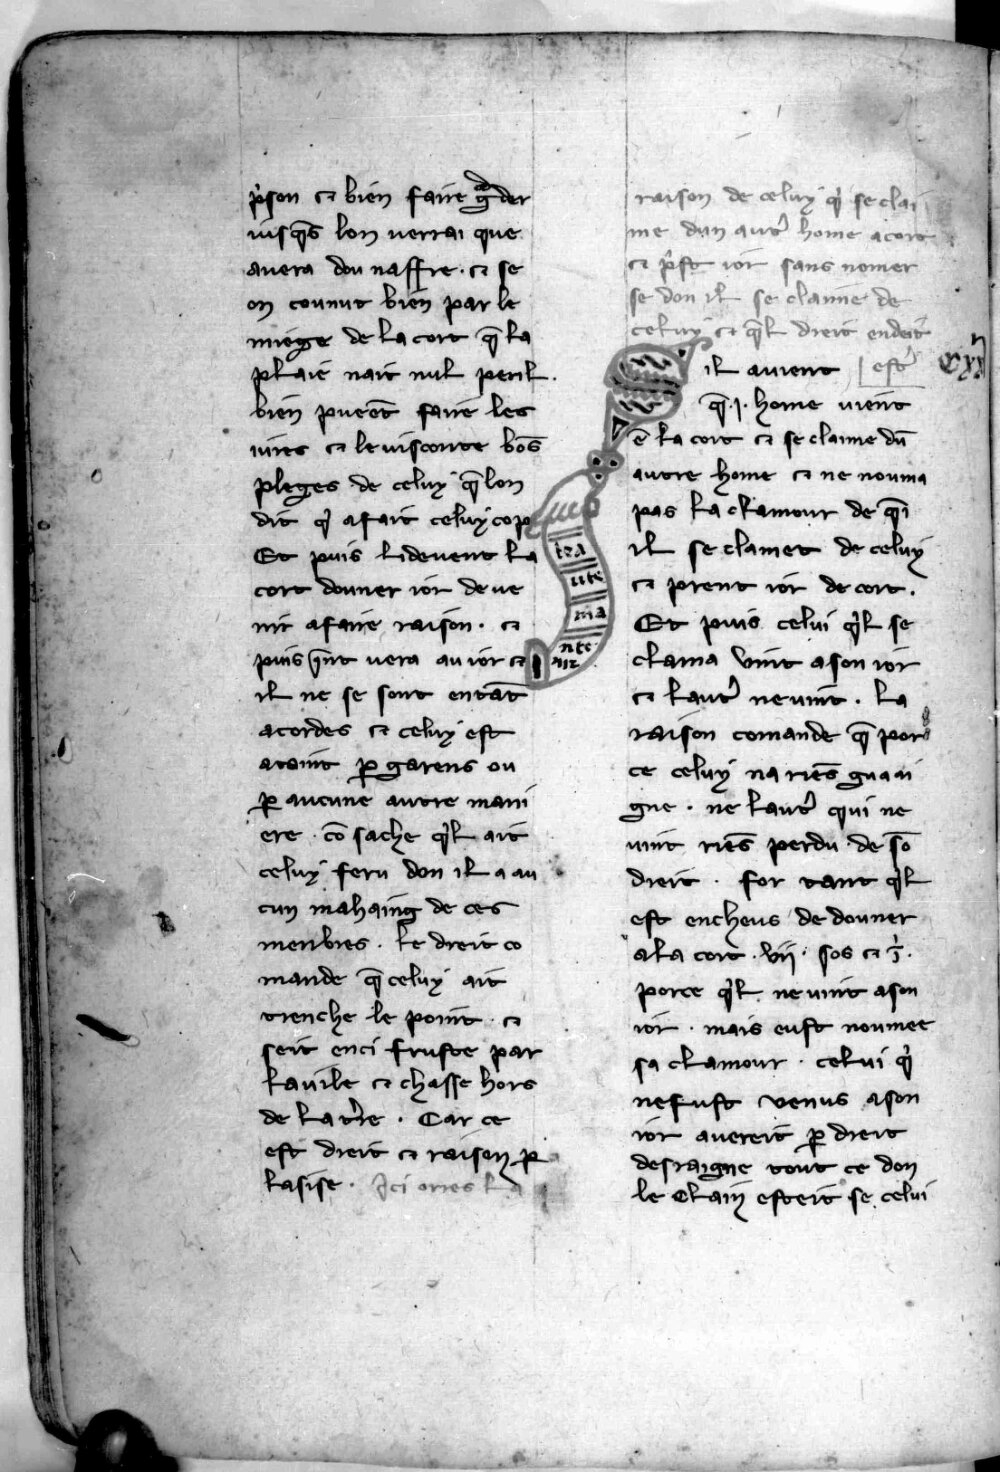 p̾son ⁊ bien faire g̾der
iusq̄s lon uerrai que
auera dou naffre · ⁊ se
on counut bien par le
miege de la cort q̄ la
plaie nait nul peril.
bien pueēt faire les
iures ⁊ le uisconte bōs
pleges de celuy q̄ lon
dit q̾ a fait celuy cop
Et puis li deuent la
cort douner ior de ue
nir a faire raison · ⁊
puis q̄nt uera au ior ⁊
il ne se sont entāt
acordes ⁊ celuy est
ataint ꝑ garens ou
ꝑ aucune autre mani
ere · cō sache q̾l ait
celuy feru don il a au
cun mahaing de ces
menbres · le dreit co
mande q̄ celuy ait
trenche le point · ⁊
seit enci fruste par
la uile ⁊ chasse hors
de la t̾re · Car ce
est dreit ⁊ raison ꝑ
lasise · Ici orres la
raison de celuy q̾ se clai
me dun aut̾ home a cort
⁊ p̾st ior sans nomer
se don il se claime de
celuy ⁊ q̄l dreit en deit
il auient est̾
q̄ .i. home uient
ē la cort ⁊ se claime dū
autre home ⁊ ne nouma
pas la clamour de q̄i
il se clamet de celuy
⁊ prent ior de cort.
Et puis celui q̾l se
clama vint a son ior
⁊ laut̾ ne uint · la
raison comande q̄ por
ce celuy na riēs guaai
gne · ne laut̾ qui ne
uint riēs perdu de sō
dreit · for tant q̾l
est encheus de douner
a la cort · vii · sos ⁊ i̾ ·
porce q̾l ne uint a son
ior · mais eust noumee
sa clamour · celui q̾
ne fust venus a son
ior auereit ꝑ dreit
desraigne tout ce don
le claim esteit se celui